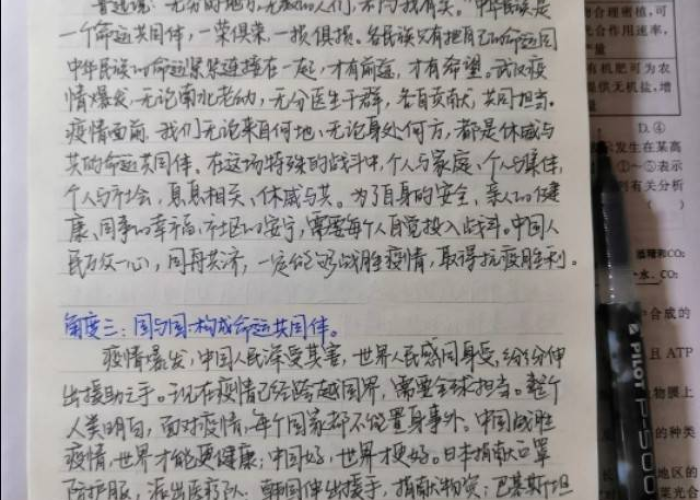 一个命运共同体，一荣俱荣，一损俱损。各民族只有把自己的命运同
中华民族的命运紧紧连接在一起，才有前途，才有希望。武汉疫
情爆发，无论南北老幼，无分医生干群，各自贡献，共同担当。
疫情面前，我们无论来自何地，无论身处何方，都是休戚与
共的命运共同体。在这场特殊的战斗中，个人与家庭、个人与集体、
个人与社会，息息相关、休戚与共。为了自身的安全，亲人的健
康、同事的幸福、社区的安宁，需要每个人自觉投入战斗。中国人
民万众一心，同舟共济，一定能够战胜疫情，取得抗疫胜利。
角度三：国与国构成命运共同体。
疫情爆发，中国人民深受其害，世界人民感同身受，纷纷伸
出援助之手。现在疫情已经跨越国界，需要全球担当。整个
人类明白，面对疫情，每个国家都不能置身事外。中国战胜
疫情，世界才能更健康；中国好，世界才更好。日本捐献口罩
防护服，派出医疗队，韩国伸出援手，捐献物资；巴基斯坦
合理密植，可
光合作用速率，
产量
有机肥可为农
提供无机盐，增
D.④
示发生在某高
①～⑤表示
列有关分析
( )
温精和CO₂
水、CO₂
合成的
且 ATP
物膜上
的种类
的
地区的
PILOT P-500